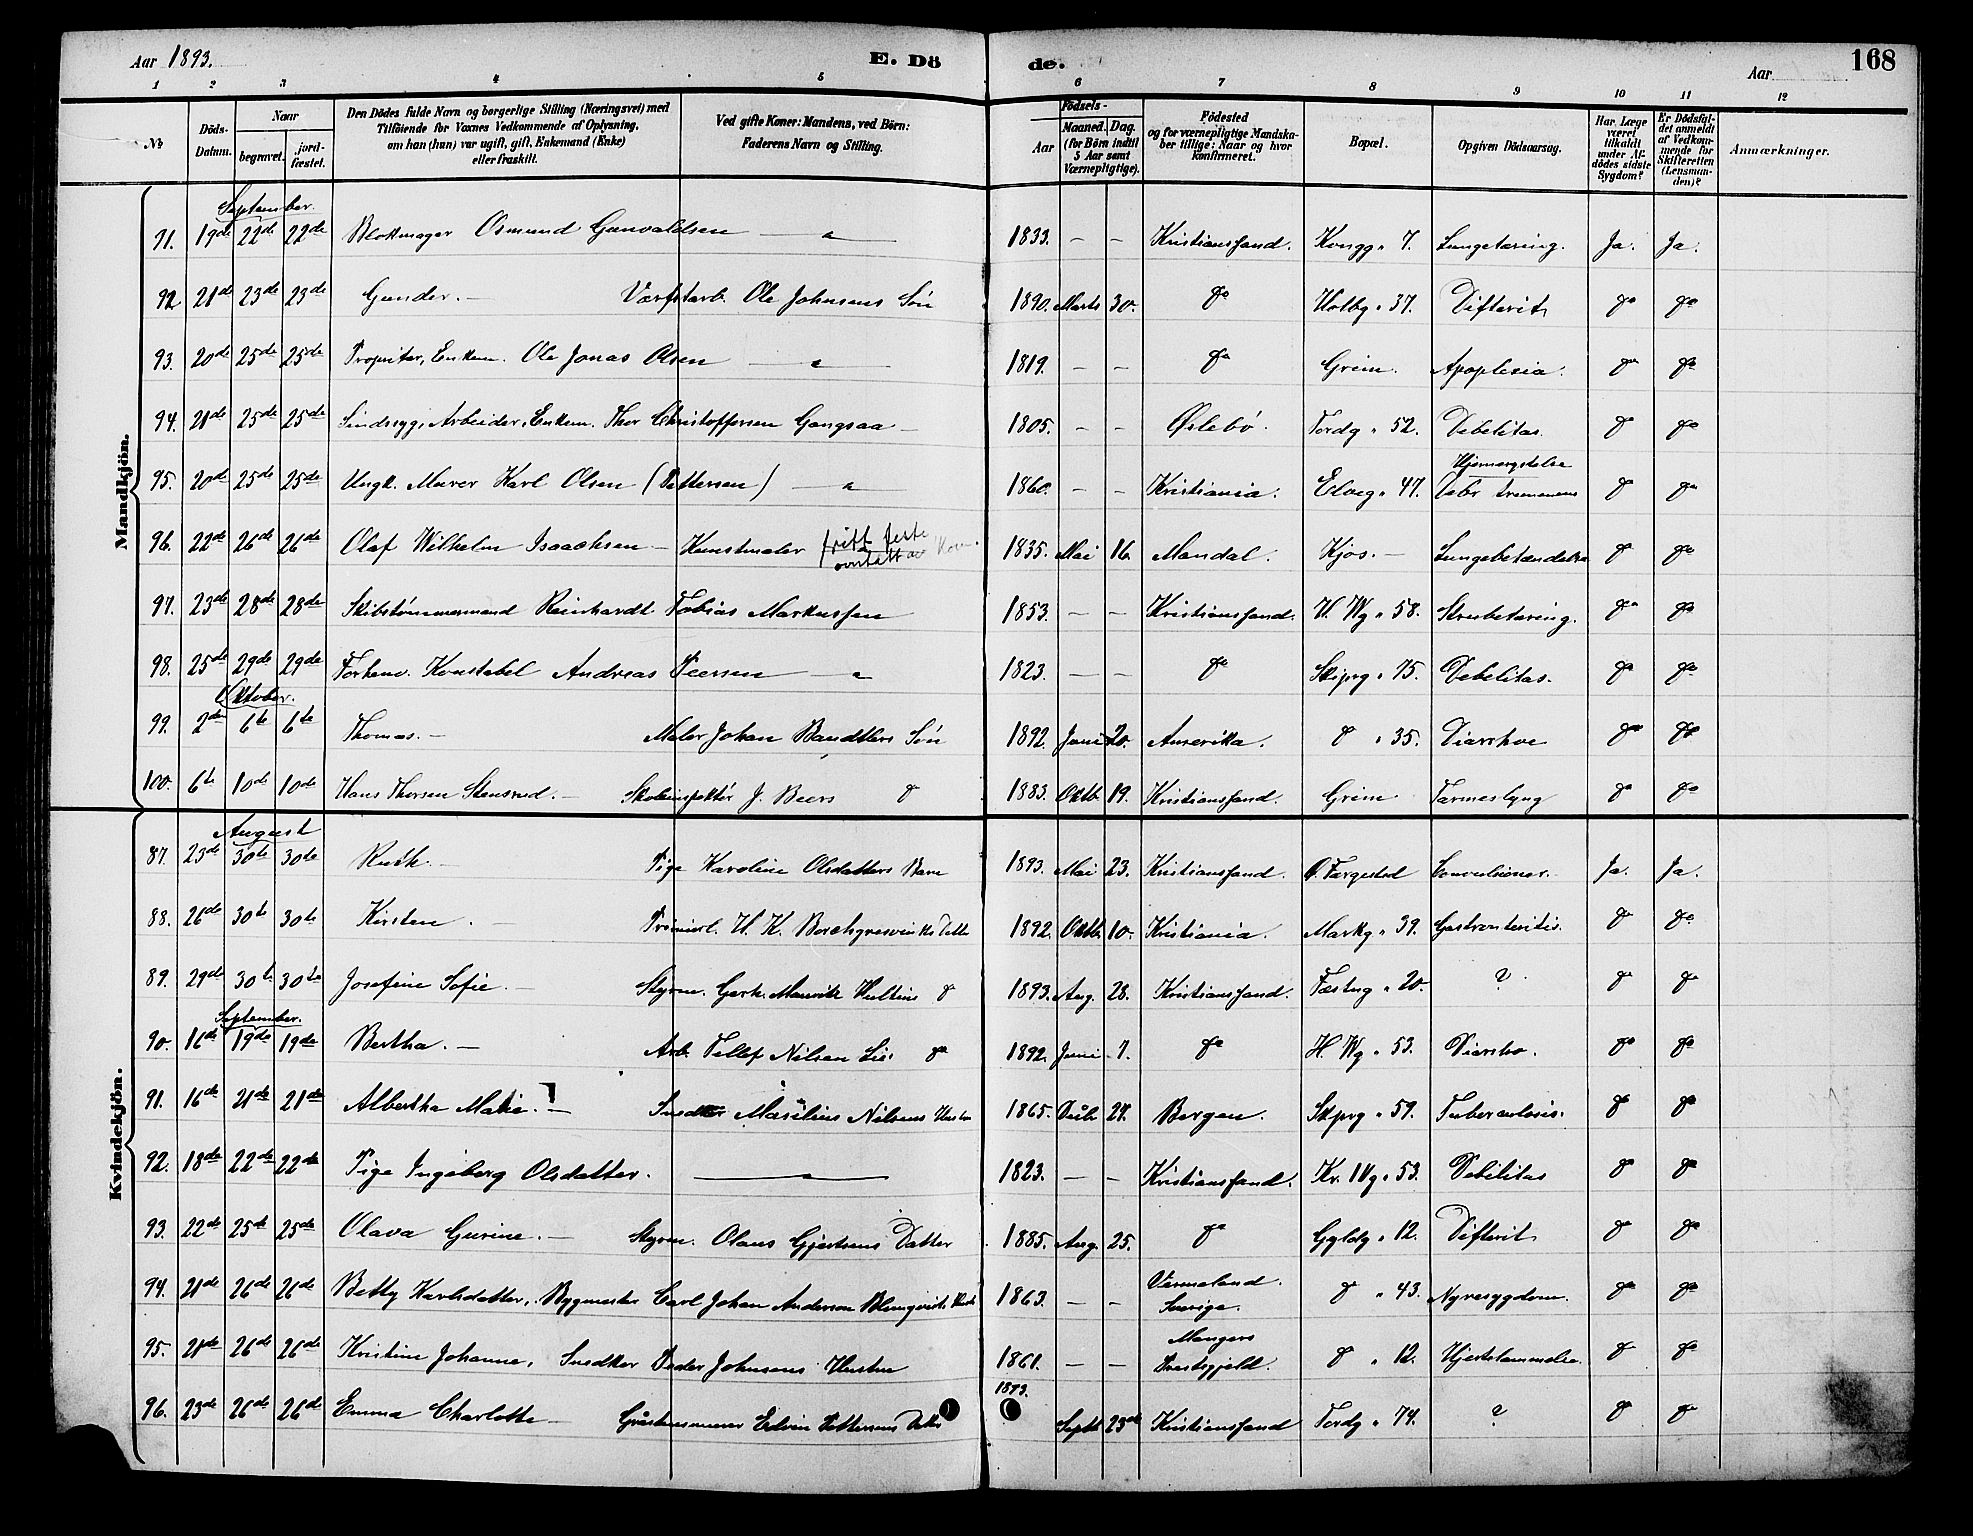 Aar 1893. E. Dö de. Aar 168
1 2 3 4 5 6 7 8 9 10 11 12
No
Döds-Datum.
Naar
begravet.
jord-fæstet.
Den Dödes fulde Navn og borgerlige Stilling (Næringsvei) med
Tilföiende for Voxnes Vedkommende af Oplysning,
om han (hun) var ugift, gift, Enkemand (Enke)
eller fraskilt.
Ved gifte Koner: Mandens, ved Börn:
Faderens Navn og Stilling.
Födsels-
Aar
Maaned. Dag.
(for Börn indtil
5 Aar samt
Værnepligtige).
Födested
og for værnepligtige Mandska-
ber tillige: Naar og hvor
konfirmeret.
Bopæl.
Opgiven Dödsaarsag.
Har Læge
været
tilkaldt
under Af-
dödes sidste
Sygdom?
Er Dödsfal-
det anmeldt
af Vedkom-
mende for
Skifteretten
(Lensman-
den)?
Anmærkninger.
Mandkjön.
September.
91. 19de 22de 22de Blokmager Osmund Gunvaldsen — " — 1833. — — Kristianssand. Kongg. 7. Lungetæring. Ja. Ja.
92 21de 23de 23de Gunder. — Værftarb. Ole Johnsens Sön 1890. Marts 30. do Holbg " 37. Difterit do do
93. 20de 25de 25de Propritær, Enkem. Ole Jonas Olsen — " — 1819. — — do Grim. Apoplexia. do do
94. 21de 25de 25de Sindssyg, Arbeider, Enkem. Thor Christoffersen Gangsaa — 1805. — — Øslebö. Tordg " 52. Debelitas. do do
95. 20de 25de 25de Ungk. Murer Karl Olsen (Pettersen) — " — 1860. — — Kristiania. Elveg " 47. Hjernerystelse
Delir tremenens do do
96. 22de 26de 26de Olaf Wilhelm Isaachsen — Kunstmaler 1835. Mai 16. Mandal. Kjos. — Lungebetændelse do do
97. 23de 28de 28de Skibstömmermand Reinhardt Tobias Markussen 1853. — — Kristianssand. V. Wg " 58. Strubetæring. do do
98. 25de 29de 29de Forhenv. Konstabel Andreas Peersen — " 1823. — — do Skipprg " 75. Debelitas. do do
Oktober.
99. 2den 6te 6te Thomas. — Maler Johan Bandtlers Sön 1892. Juni 20. Amerika. do " 35. Diarrhoe do do
100. 6te 10de 10de Hans Thorsen Stensrud. — Skoleinspektör J. Beers do 1883. Oktb. 19. Kristianssand. Grim Tarmeslyng do do
Kvindekjön.
August
87. 23de 30te 30te Ruth. — Pige Karoline Olsdatters Barn 1893. Mai 23. Kristianssand. O. Færgested Convulsioner. Ja. Ja.
88. 26de 30te 30te Kirsten. — Premierl. H. K. Borchgrevinks Datter 1892. Oktb. 10. Kristiania. Markg " 39. Gastronteritis. do do
89. 29de 30te 30te Josefine Sofie. — Styrm. Gerh. Mauritz Hultins do 1893. Aug. 28. Kristianssand. Fæstng " 20. ? do do
September.
90. 16de 19de 19de Bertha. — Arb. Tellef Nilsen Lie do 1892. Juni 7. do H. Wg " 53. Diarrho. do do
91. 16de 21de 21de Albertha Marie. — Snedker Masilius Nilsens Hustru 1865. Decbr 27. Bergen. Skiprg " 59. Tuberculosis. do do
92. 18de 22de 22de Pige Ingeborg Olsdatter. — " — 1823. — — Kristianssand. Kr. IVg " 53. Debilitas do do
93. 22de 25de 25de Olava Gurine. — Styrm. Olaus Gjertsens Datter 1885. Aug. 25. do Gyldg " 12. Difterit do do
94. 21de 26de 26de Betty Karlsdatter, Bygmester Carl Johan Anderson Blomqvists Hustr 1863. — — Vermeland.
Sverige. do " 43. Nyresygdom. do do
95. 21de 26de 26de Kristine Johanne, Snedker Peder Johnsens Hustru 1861. — — Mangers
Prestegjeld. do " 12. Hjertelammelse. do do
96. 23de 26de 26de Emma Charlotte — Edvin Pettersens Datter 1893. Septb 23de Kristianssand Tordg " 74. ? do do